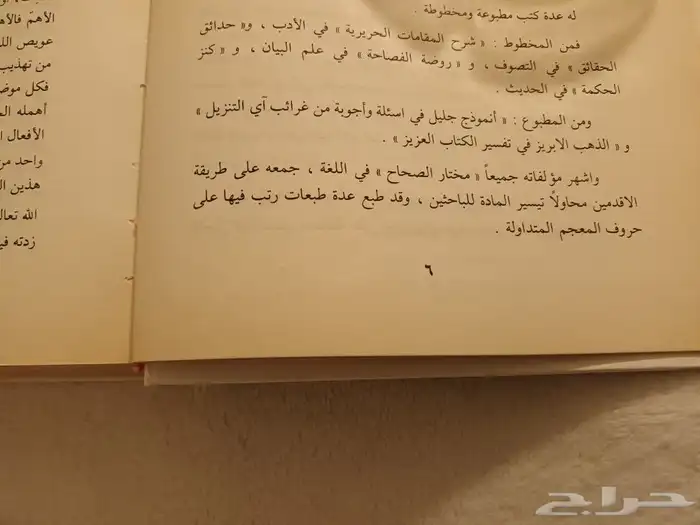 له عدة كتب مطبوعة ومخطوطة .
فمن المخطوط : « شرح المقامات الحريرية » في الأدب ، و« حدائق
الحقائق » في التصوف ، و « روضة الفصاحة » في علم البيان ، و « كنز
الحكمة » في الحديث .
ومن المطبوع : « أنموذج جليل في اسئلة وأجوبة من غرائب آي التنزيل »
و « الذهب الابريز في تفسير الكتاب العزيز » .
واشهر مؤلفاته جميعاً « مختار الصحاح » في اللغة ، جمعه على طريقة
الاقدمين محاولاً تيسير المادة للباحثين ، وقد طبع عدة طبعات رتب فيها على
حروف المعجم المتداولة .
٦
الأهمّ فالأه
عويص الل
من تهذيب
فكل موض
أهمله ال
الأفعال ا
واحد من
هذين ال
الله تعال
زدته في
حراج